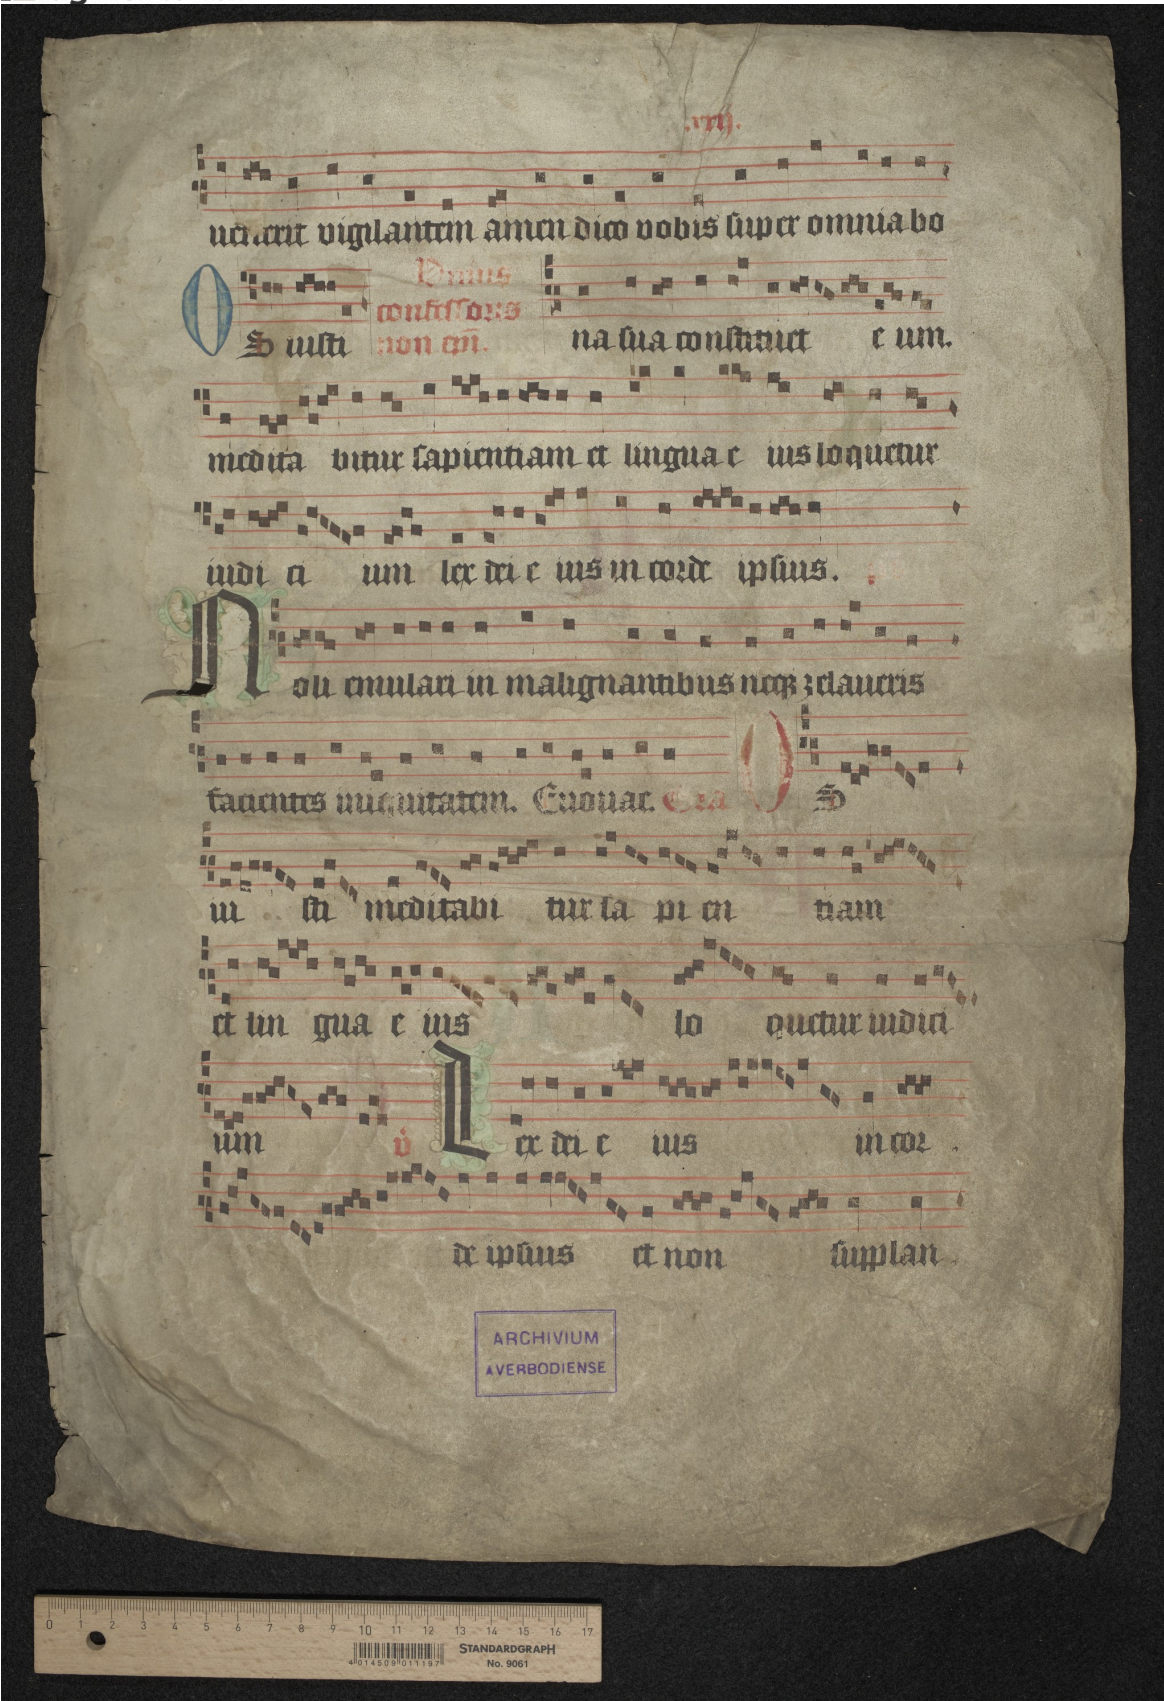 .xxij.
uenerit vigilantem amen dico vobis super omnia bo
Unius
confessoris
non em̄.
OS iusti
na sua constituet e um.
medita bitur sapientiam et lingua e ius loquetur
iudi ci um lex dei e ius in corde ipsius.
Noli emulari in malignantibus neqz zelaueris
facientes iniquitatem. Euouae. Gra OS
iu sti meditabi tur sa pi en tiam
et lin gua e ius lo quetur iudici
um v̇ Lex dei e ius in cor
de ipsius et non supplan
ARCHIVIUM
AVERBODIENSE
0 1 2 3 4 5 6 7 8 9 10 11 12 13 14 15 16 17
4 014509 011197
STANDARDGRAPH
No. 9061